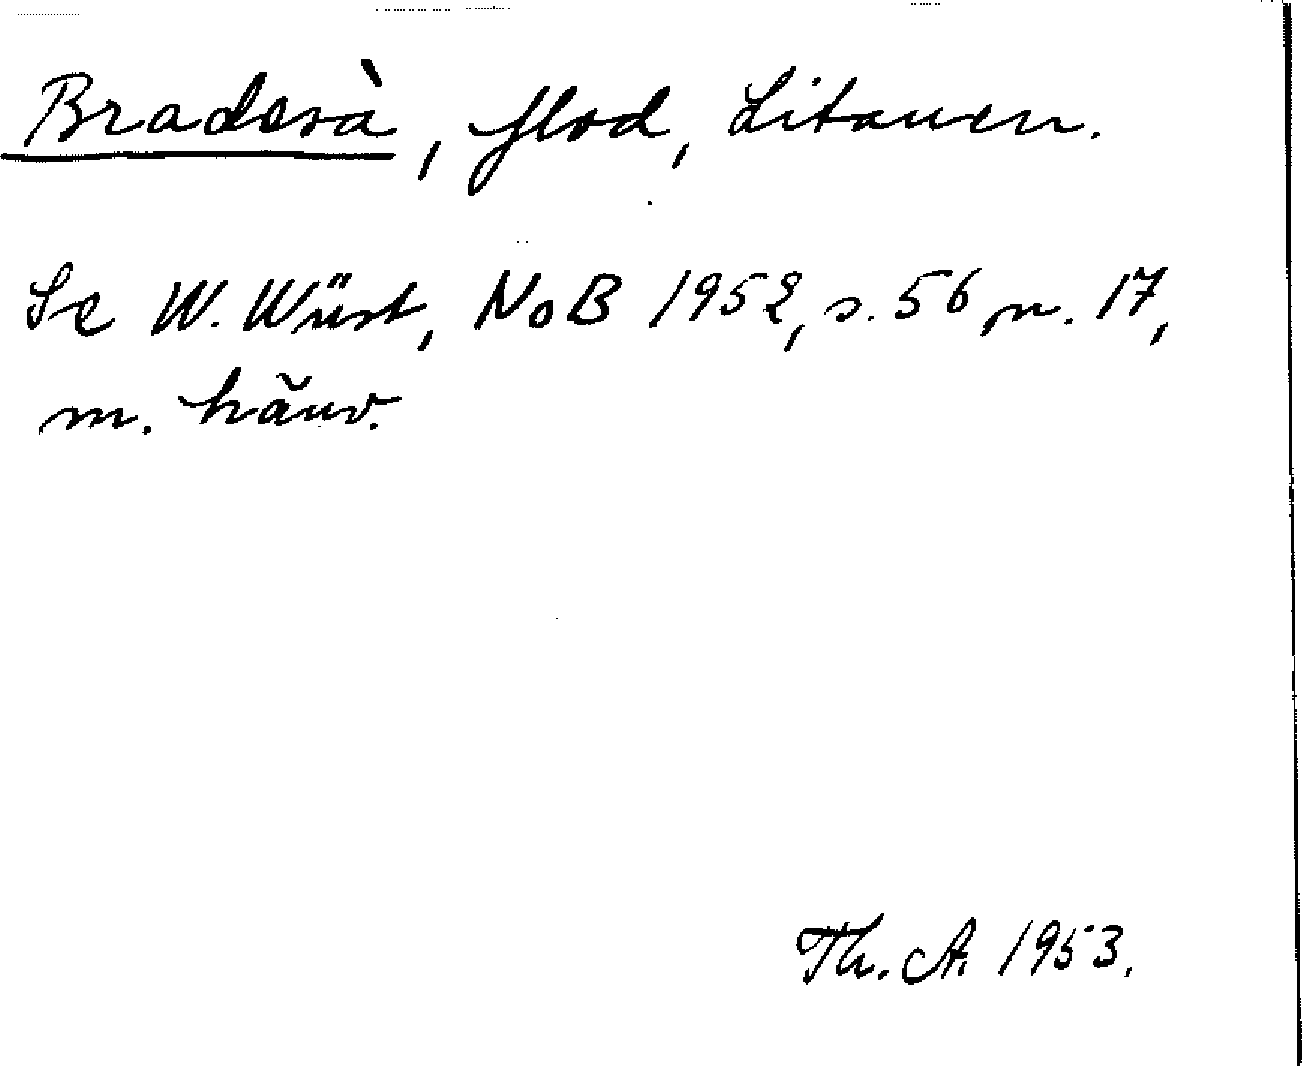 Bradesà, flod, Litauen.
Se W. Wüst, NoB 1952, s. 56, n. 17,
m. hănv.
Th. A. 1953.